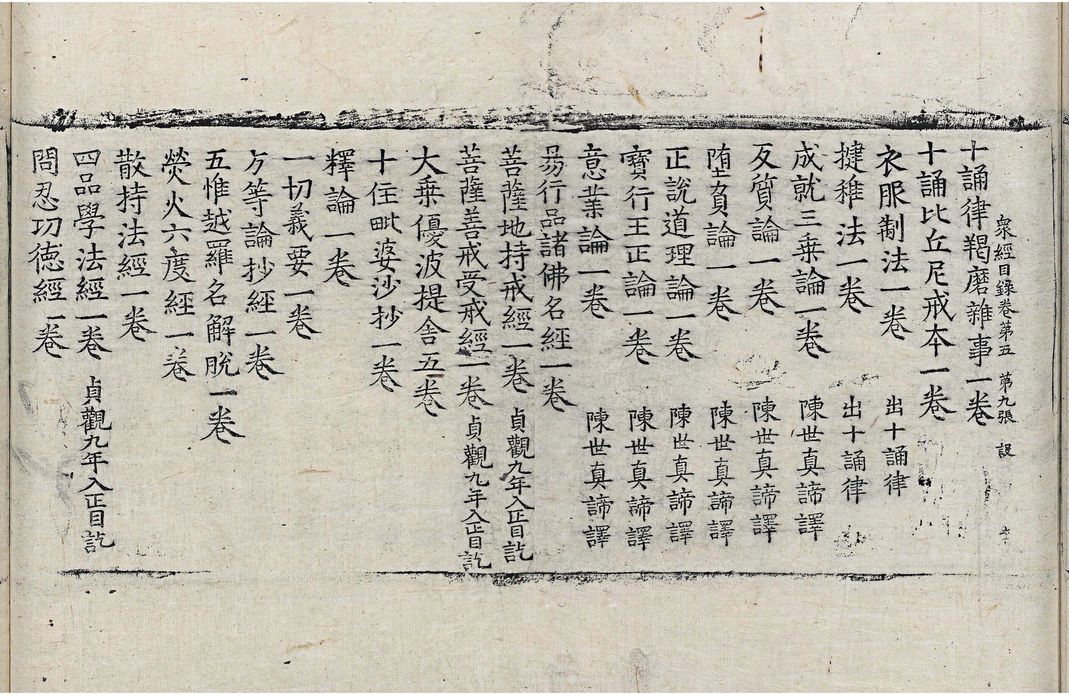 衆經目錄卷第五 第九張 設
十誦律羯磨雜事一卷
十誦比丘尼戒本一卷
衣服制法一卷 出十誦律
揵稚法一卷 出十誦律
成就三乗論一卷 陳世真諦譯
反質論一卷 陳世真諦譯
堕負論一卷 陳世真諦譯
正說道理論一卷 陳世真諦譯
寶行王正論一卷 陳世真諦譯
意業論一卷 陳世真諦譯
昜行品諸佛名經一卷
菩薩地持戒經一卷 貞觀九年入正目訖
菩薩善戒受戒經一卷 貞觀九年入正目訖
大乗優波提舎五卷
十住毗婆沙抄一卷
釋論一卷
一切義要一卷
方等論抄經一卷
五惟越羅名解脫一卷
熒火六度經一卷
散持法經一卷
四品學法經一卷 貞觀九年入正目訖
問忍功徳經一卷